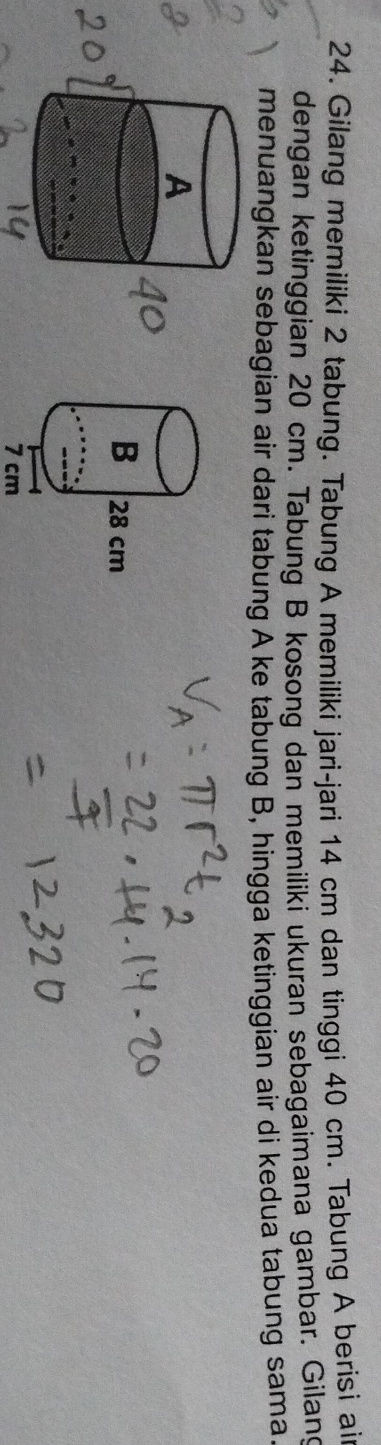 24. Gilang memiliki 2 tabung. Tabung A memiliki jari-jari 14 cm dan tinggi 40 cm. Tabung A berisi air
dengan ketinggian 20 cm. Tabung B kosong dan memiliki ukuran sebagaimana gambar. Gilang
menuangkan sebagian air dari tabung A ke tabung B, hingga ketinggian air di kedua tabung sama.
A
40
20
14
B
28 cm
7 cm
V_A = πr²t
= 22/7 . 14 . 14 . 20
2
= 12320